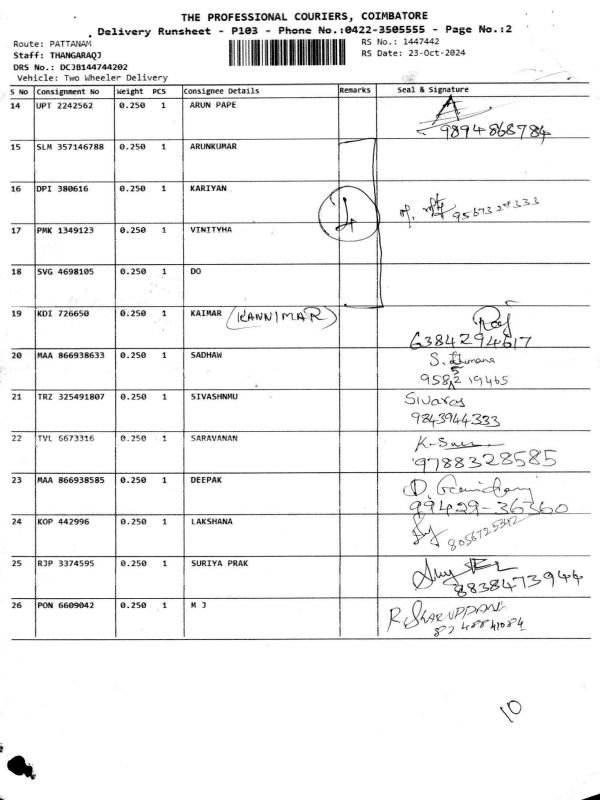 THE PROFESSIONAL COURIERS, COIMBATORE
Delivery Runsheet - P103 - Phone No.:0422-3505555 - Page No.:2
Route: PATTANAM
RS No.: 1447442
Staff: THANGARAQJ
RS Date: 23-Oct-2024
DRS No.: DCJB144744202
Vehicle: Two Wheeler Delivery
S No Consignment No Weight PCS Consignee Details Remarks Seal & Signature
14 UPT 2242562 0.250 1 ARUN PAPE
9894868784
15 SLM 357146788 0.250 1 ARUNKUMAR
16 DPI 380616 0.250 1 KARIYAN
4
17 PMK 1349123 0.250 1 VINITYHA
18 SVG 4698105 0.250 1 DO
19 KDI 726650 0.250 1 KAIMAR (KANNIMAR) Raj
6384294617
20 MAA 866938633 0.250 1 SADHAW S.
9582 19465
21 TRZ 325491807 0.250 1 SIVASHNMU Sivaraj
9843944333
22 TVL 6673316 0.250 1 SARAVANAN
9788328585
23 MAA 866938585 0.250 1 DEEPAK
99429-36360
24 KOP 442996 0.250 1 LAKSHANA
8056725342
25 RJP 3374595 0.250 1 SURIYA PRAK
8838473944
26 PON 6609042 0.250 1 M J R
10